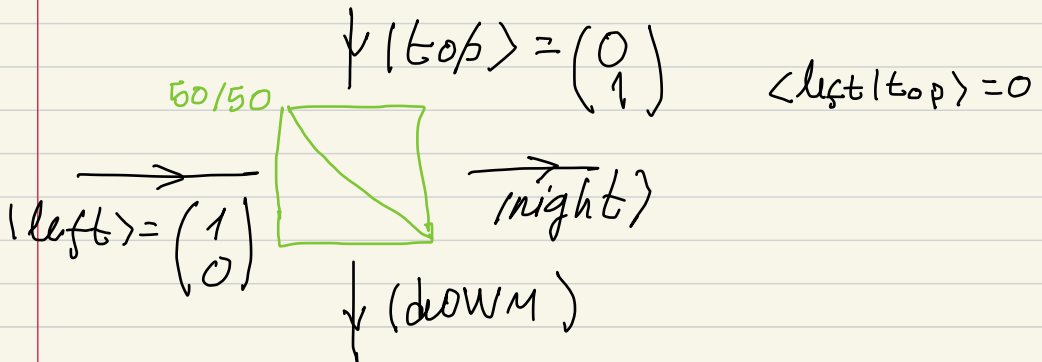 |top⟩ = (0 1)
⟨left|top⟩ = 0
50/50
|left⟩ = (1 0)
|right⟩
|down⟩